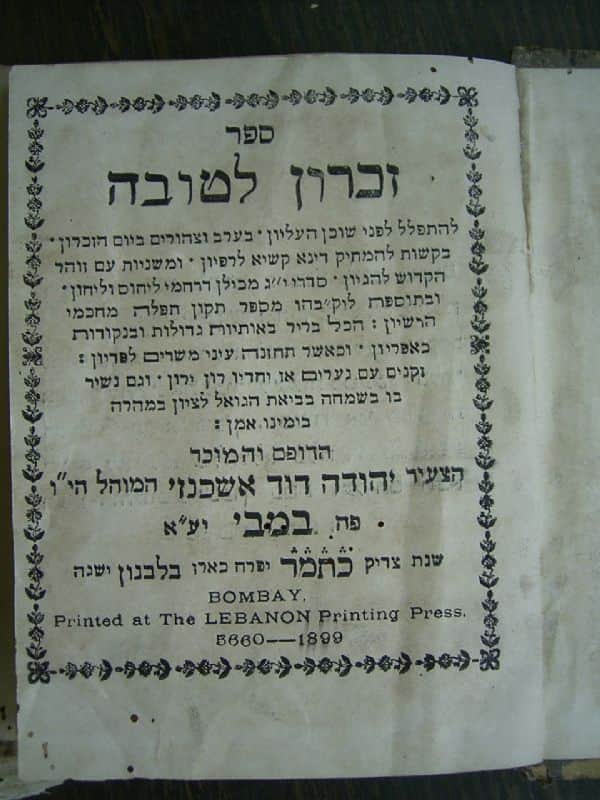 ספר
זכרון לטובה
להתפלל לפני שוכן העליון • בערב וצהורים ביום הזכרון •
בקשות להמתיק דינא קשיא לרפיון • ומשניות עם זוהר
הקדוש להגיון • סדרי י״ג מכילן דרחמי ליחוס וליחון •
ובתוספת ליק״בהו מספר תקון תפלה מחכמי
הרשיון : הכל בריר באותיות גדולות ובנקודות
כאפריון • וכאשר תחזנה עיני משרים לפדיון :
זקנים עם נערים אז יחדיו רון ירון • וגם נשיר
בו בשמחה בביאת הגואל לציון במהרה
בימינו אמן :
הדופס והמוכר
הצעיר יהודה דוד אשכנזי המוהל הי״ו
• פה במבי יע״א
שנת צדיק כתמר יפרח כארז בלבנון ישגה
BOMBAY,
Printed at The LEBANON Printing Press.
5660—1899